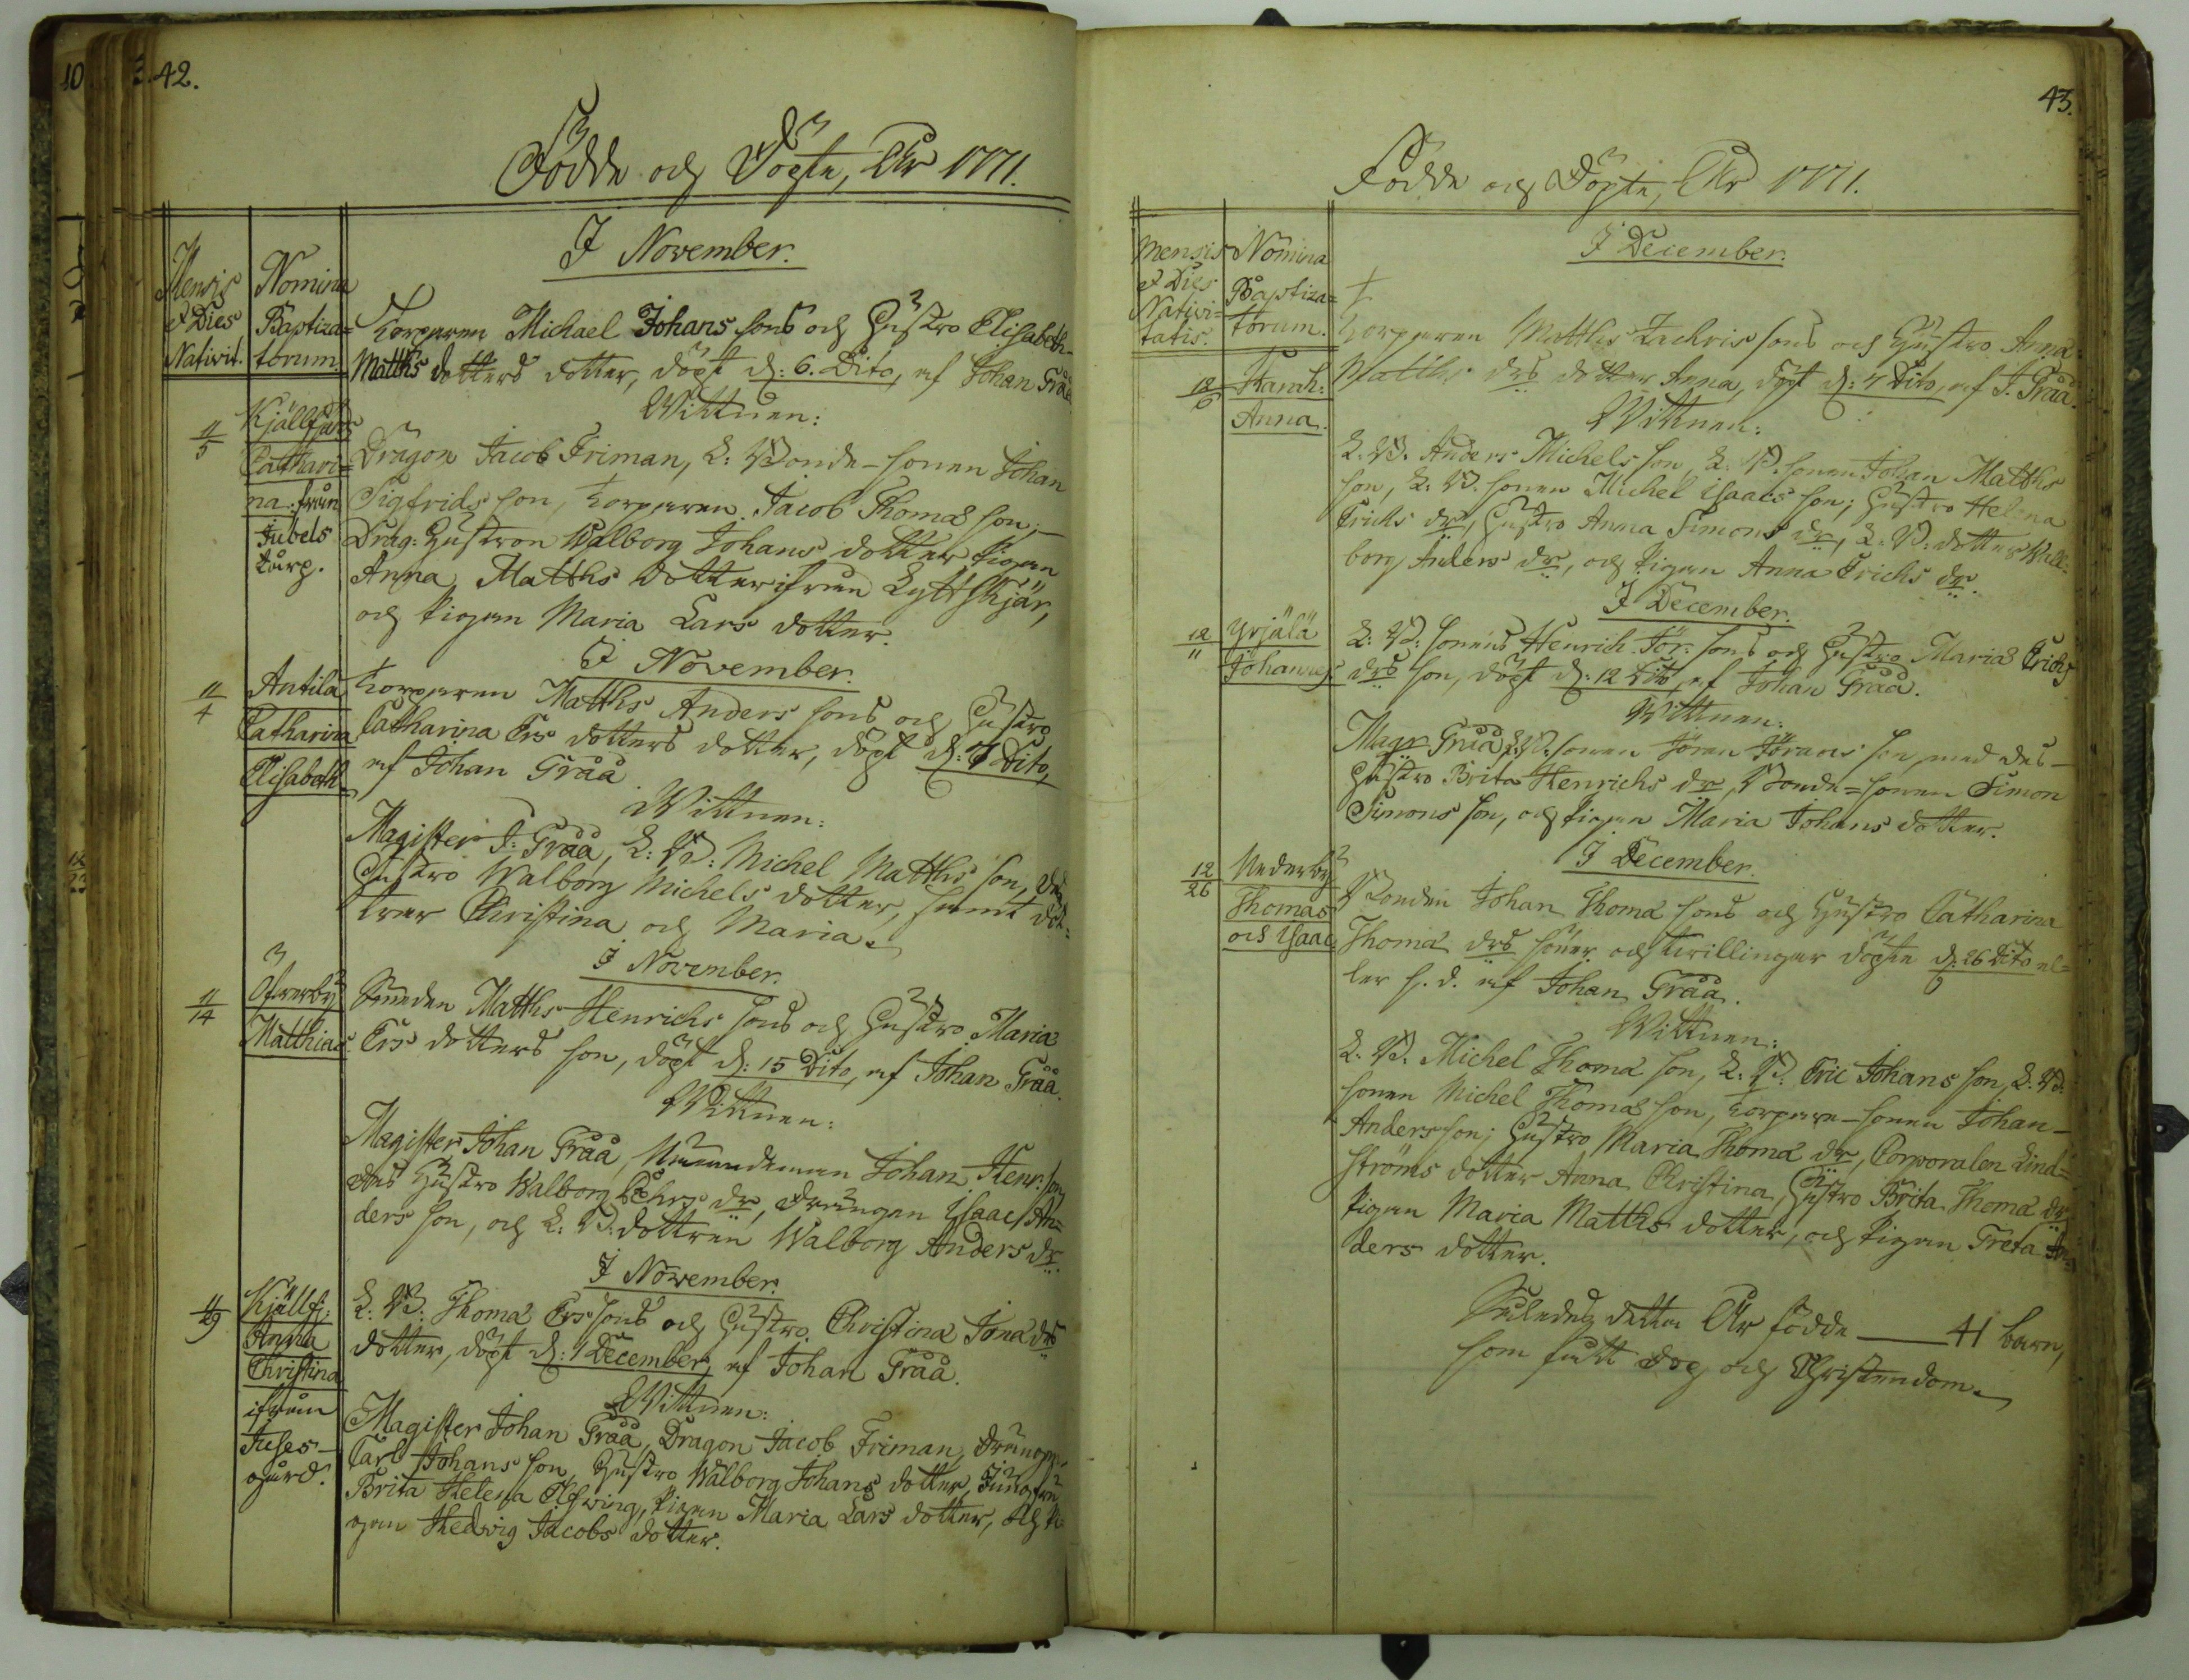 42.
Födde och Döpte, År 1771.
Mensis et Dies Nativit.
Nomina Baptiza=torum.
I November.
11/5
Kjällfjärd
Cathari=
na från
Jubels
torp.
Torparen Michael Johans sons och Hustro Elisabeth
Matths dotters dotter, döpt d: 6. Dito, af Johan Gråå.
Wittnen:
Dragon Jacob Friman, L: Bonde-sonen Johan
Sigfrids son, Torparen Jacob Thomæ son,
Drag: Hustron Walborg Johans dotter Pigan
Anna Matths dotter ifrån Lyttskjär,
och Pigan Maria Lars dotter.
I November.
11/4
Antila
Catharina
Elisabeth
Torparen Matths Anders sons och Hustro
Catharina Ers dotters dotter, döpt d: 7 Dito,
af Johan Gråå
Wittnen:
Magister J: Gråå, L: B: Michel Matths son, des
Hustro Walborg Michels dotter, samt döt=
trar Christina och Maria.
I November.
11/14
Öfverby
Matthias
Smeden Matths Henrichs sons och Hustro Maria
Ers dotters son, döpt d: 15 Dito, af Johan Gråå.
Wittnen:
Magister Johan Gråå, Nämndeman Johan Henr: son
des Hustro Walborg dr, Drängen Isaac An=
ders son, och L: B: dottren Walborg Anders dr.
I November.
11/29
Kjällfj:
Anna
Christina
ifrån
Juses-
gård.
L: B: Thomæ Ers sons och Hustro Christina Jonæ drs
dotter, döpt d: 1 December, af Johan Gråå.
Wittnen:
Magister Johan Gråå, Dragon Jacob Friman, Drängen
Carl Johans son, Hustro Walborg Johans dotter, Jungfru
Brita Helena Elfving, Pigan Maria Lars dotter, och Pi=
gan Hedvig Jacobs dotter.
43.
Födde och Döpte, År 1771.
Mensis et Dies Nativi=tatis.
Nomina Baptiza=torum.
I December.
12/6
Anna.
Torparen Matths Zachris sons och Hustro Anna
Matths drs dotter Anna, döpt d: 7 Dito, af J. Gråå.
Wittnen:
L. B. Anders Michels son, L: B. sonen Johan Matths
son, L: B. sonen Michel Isaacs son; Hustro Helena
Erichs dr, Hustro Anna Simons dr, L: B: dotter Wall=
borg Anders dr, och Pigan Anna Erichs dr.
I December.
12/11
Yrjälä
Johannes
L: B: sonens Henrich Jör: sons och Hustro Maria Erichs
drs son, döpt d: 12 Dito, af Johan Gråå.
Wittnen:
Magr Gråå, L: B: sonen Jören Jörans son, med des
Hustro Brita Henrichs dr, Bonde=sonen Simon
Simons son, och Pigan Maria Johans dotter.
I December.
12/26
Nederby
Thomas
och Isaac
Bonden Johan Thomæ sons och Hustro Catharina
Thomæ drs söner och twillingar döpte d: 26 Dito el=
ler s. d. af Johan Gråå.
Wittnen:
L: B. Michel Thomæ son, L: B: Eric Johans son, L: B:
sonen Michel Thomæ son, Torpare-sonen Johan
Anders son; Hustro Maria Thomæ dr, Corporalen Lind=
ströms dotter Anna Christina, Hustro Brita Thomæ dr,
Pigan Maria Matths dotter, och Pigan Greta An=
ders dotter.
Således detta År födde — 41 barn,
som fått dop och Christendom.